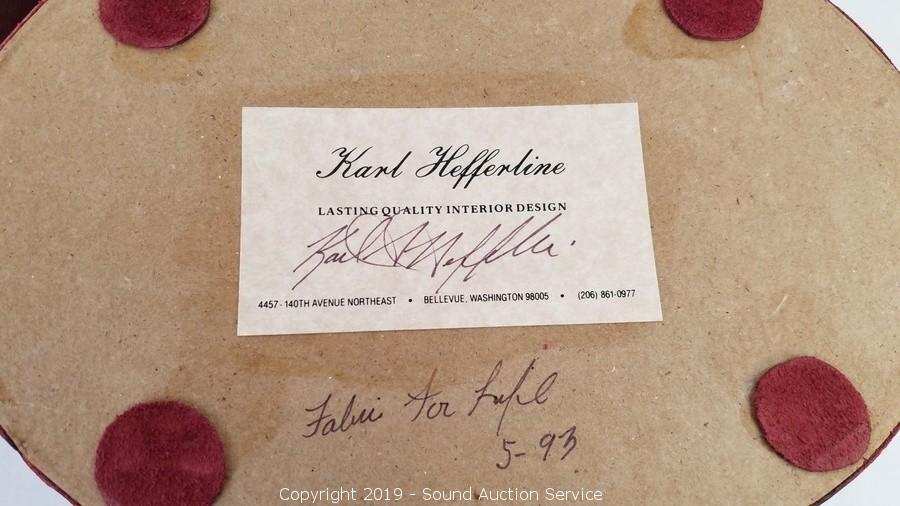 Karl Hefferline
LASTING QUALITY INTERIOR DESIGN
4457 - 140TH AVENUE NORTHEAST • BELLEVUE, WASHINGTON 98005 • (206) 861-0977
Fabric for
5-93
Copyright 2019 - Sound Auction Service